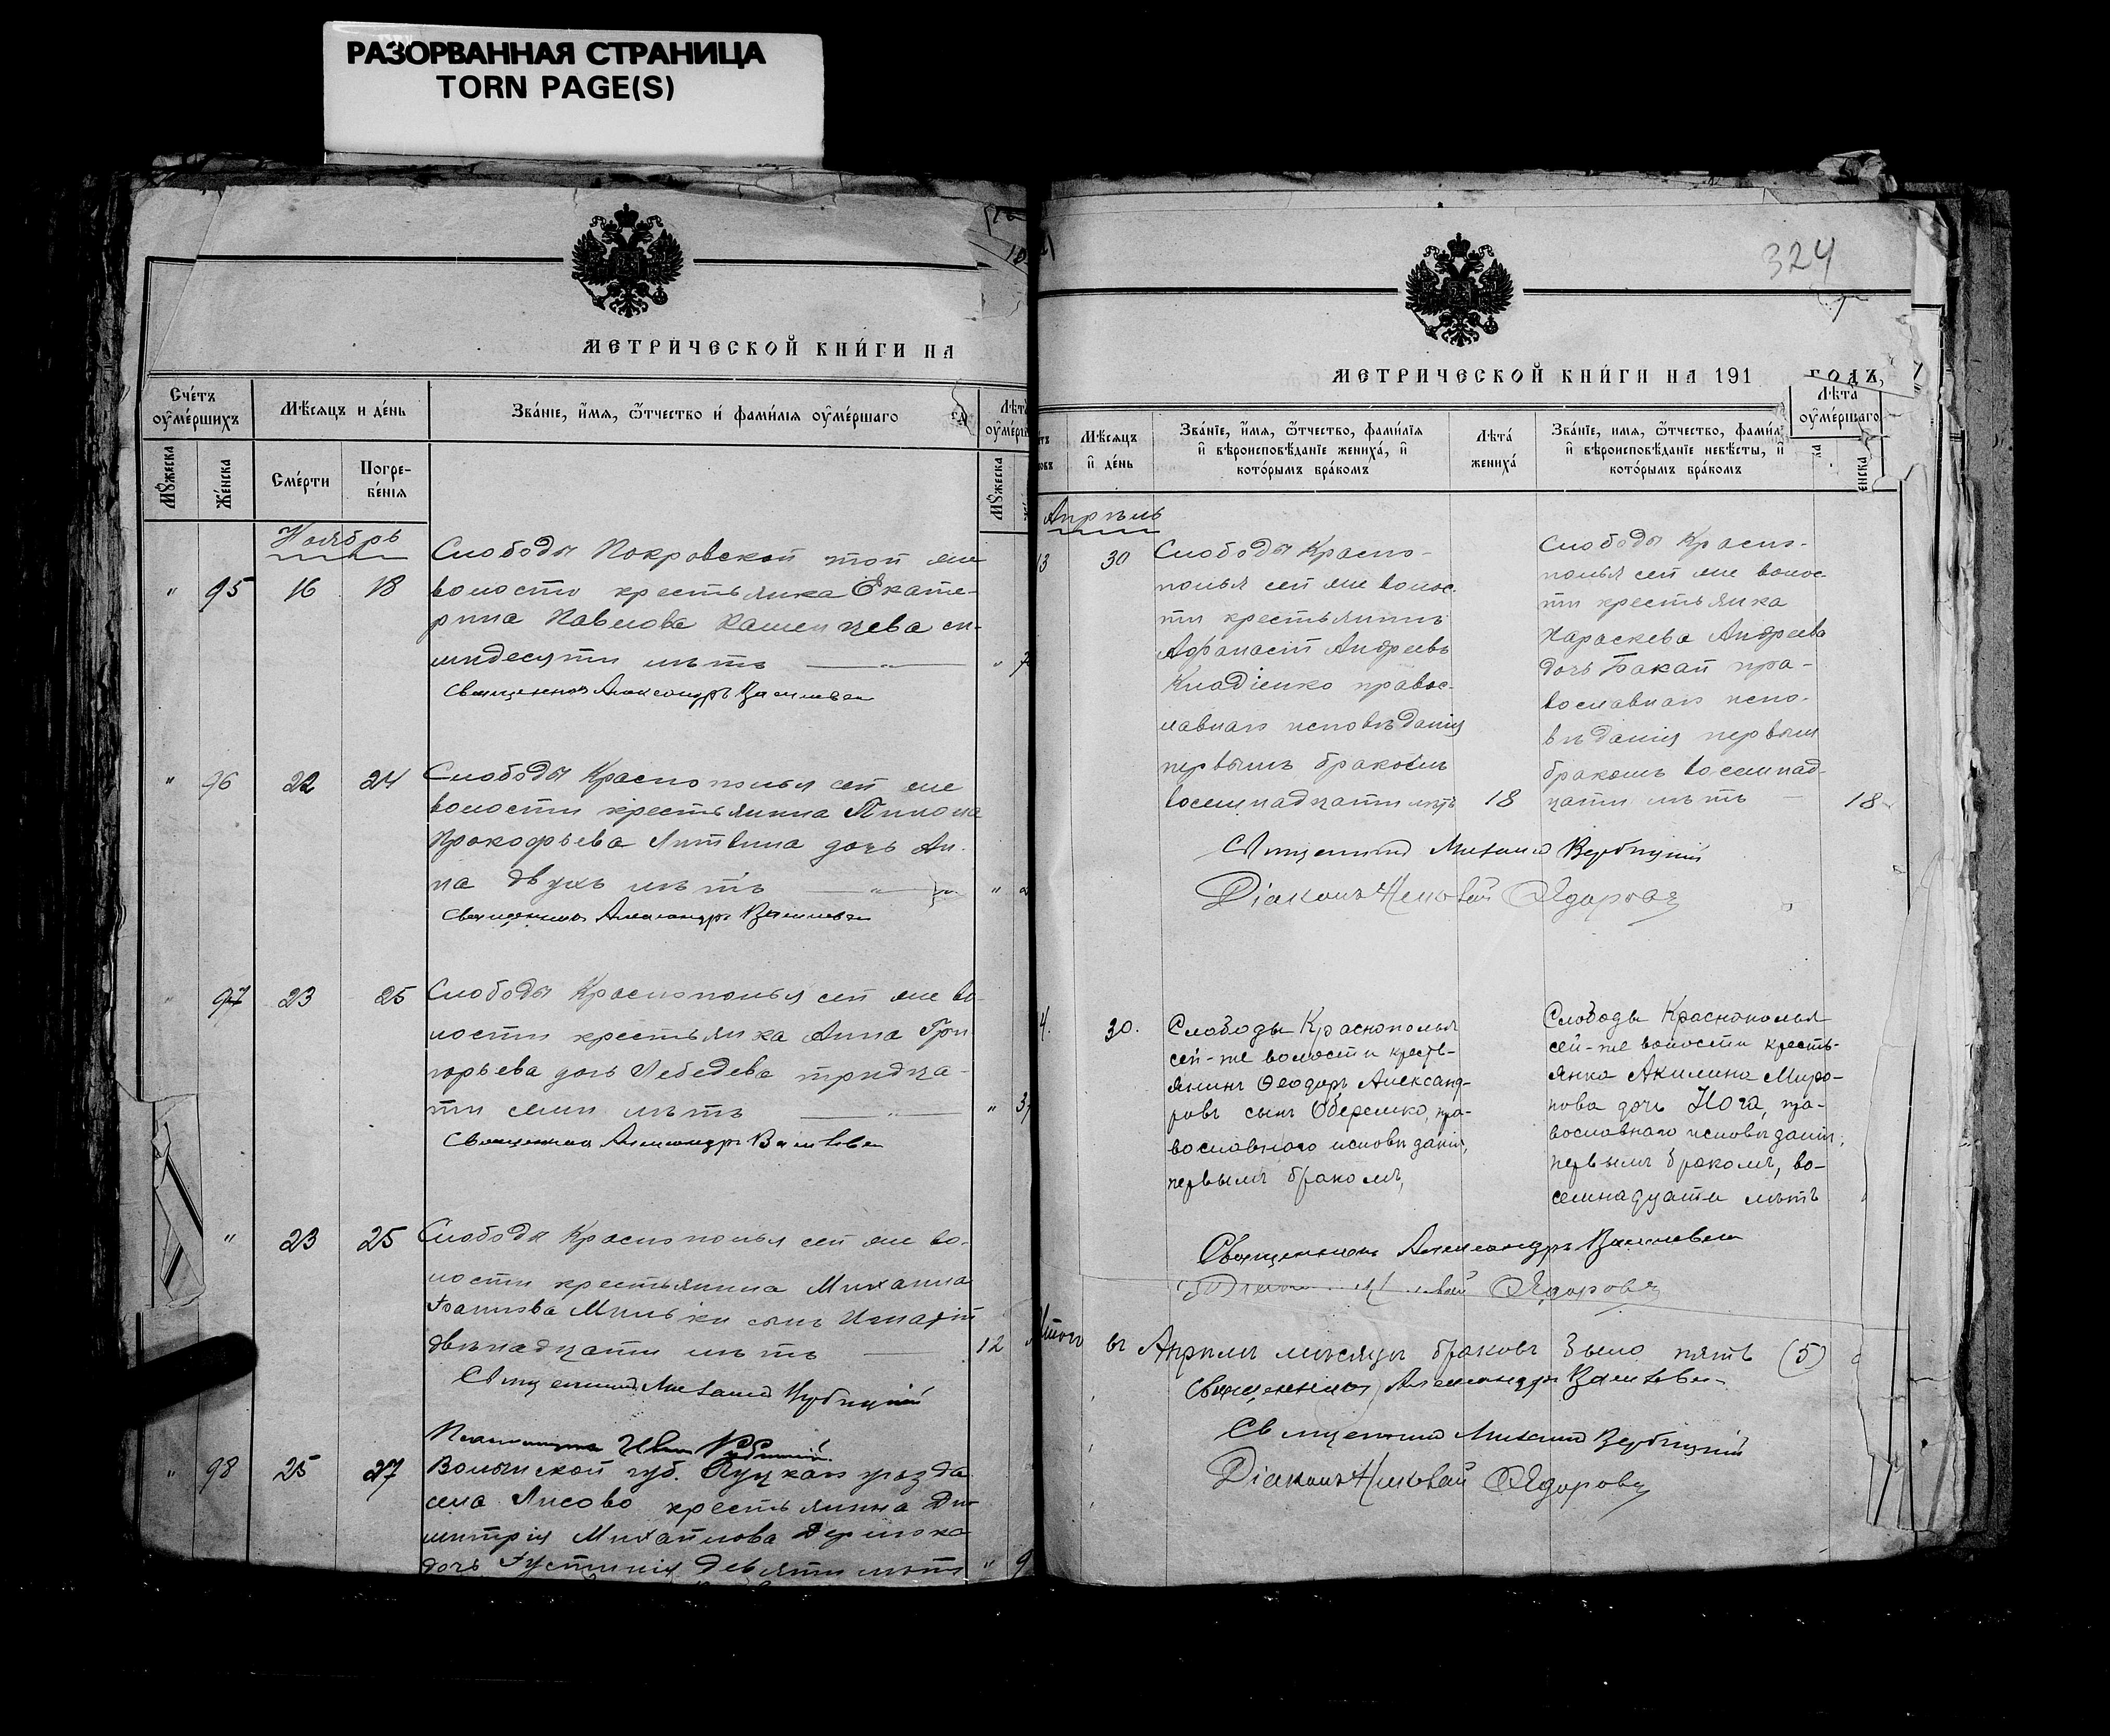 РАЗОРВАННАЯ СТРАНИЦА
TORN PAGE(S)
МЕТРИЧЕСКОЙ КНИ́ГИ НА
Сче́тъ ᲂумéршихъ
Мѣ́сяцъ и де́нь
Зва́нїе, и́мя, ѿтчество и фами́лїя ᲂуме́ршаго
Лѣта
Мꙋжеска
Же́нска
Сме́рти
Погре-
бе́нїя
Мꙋжеска
Ноябрь
" 95 16 18
Слободы Покровской той же
волости крестьянка Екате-
рина Павлова Каменцева се-
мидесяти лѣтъ — " — "
Священникъ Александръ Василевск
" 96 22 24
Слободы Краснополья сей же
волости крестьянина
Прокофьева Литвина дочь Ан-
на двухъ лѣтъ — " — "
Священникъ Александръ Василевск
" 97 23 25
Слободы Краснополья сей же во-
лости крестьянка Анна Гри
горьева дочь Лебедева тридца-
ти семи лѣтъ — " — " 37
Священникъ Александръ Василевск
" 23 25
Слободы Краснополья сей же во-
лости крестьянина Михаила
Іоаннова сынъ Игнатій
двѣнадцати лѣтъ — 12
Священникъ Михаилъ Вербицкій
Псаломщикъ Иванъ
" 98 25 27
Волынской губ. Луцкаго уѣзда
села Лисово крестьянина Ди-
митрія Михайлова
дочь Іустинія девяти лѣтъ " 9
324
МЕТРИЧЕСКОЙ КНИ́ГИ НА 191 ГОДЪ,
Мѣ́сяцъ
и де́нь
Зва́нїе, и́мя, ѿтчество, фами́лїя
и вѣроисповѣ́данїе жениха́, и
кото́рымъ бра́комъ
Лѣта́
жениха́
Зва́нїе, имя, ѿтчество, фами́л
и вѣроисповѣ́данїе невѣ́сты, и
кото́рымъ бра́комъ
Лѣта́
ᲂуме́ршаго
Апрѣль
13 30
Слободы Красно-
полья сей же волос-
ти крестьянинъ
Афанасій Андреевъ
Кладіенко правос-
лавнаго исповѣданія
первымъ бракомъ
восемнадцати лѣтъ 18
Слободы Красно-
полья сей же волос-
ти крестьянка
Параскева Андреева
дочь Бакай пра-
вославнаго испо-
вѣданія первымъ
бракомъ восемнад-
цати лѣтъ — 18
Священникъ Михаилъ Вербицкій
Діаконъ Николай Ѳедоровъ
4. 30.
Слободы Краснополья
сей-же волости кресть-
янинъ Ѳеодоръ Александ-
ровъ сынъ Оберемко, пра-
вославнаго исповѣданія,
первымъ бракомъ,
Слободы Краснополья
сей-же волости кресть-
янка Акилина Миро-
нова дочь Нога, пра-
вославнаго исповѣданія,
первымъ бракомъ, во-
семнадцати лѣтъ
Священникъ Александръ Василевск
Николай Ѳедоровъ
Итого въ Апрѣлѣ мѣсяцѣ браковъ было пять (5)
Священникъ Александръ Василевск
Священникъ Михаилъ Вербицкій
Діаконъ Николай Ѳедоровъ